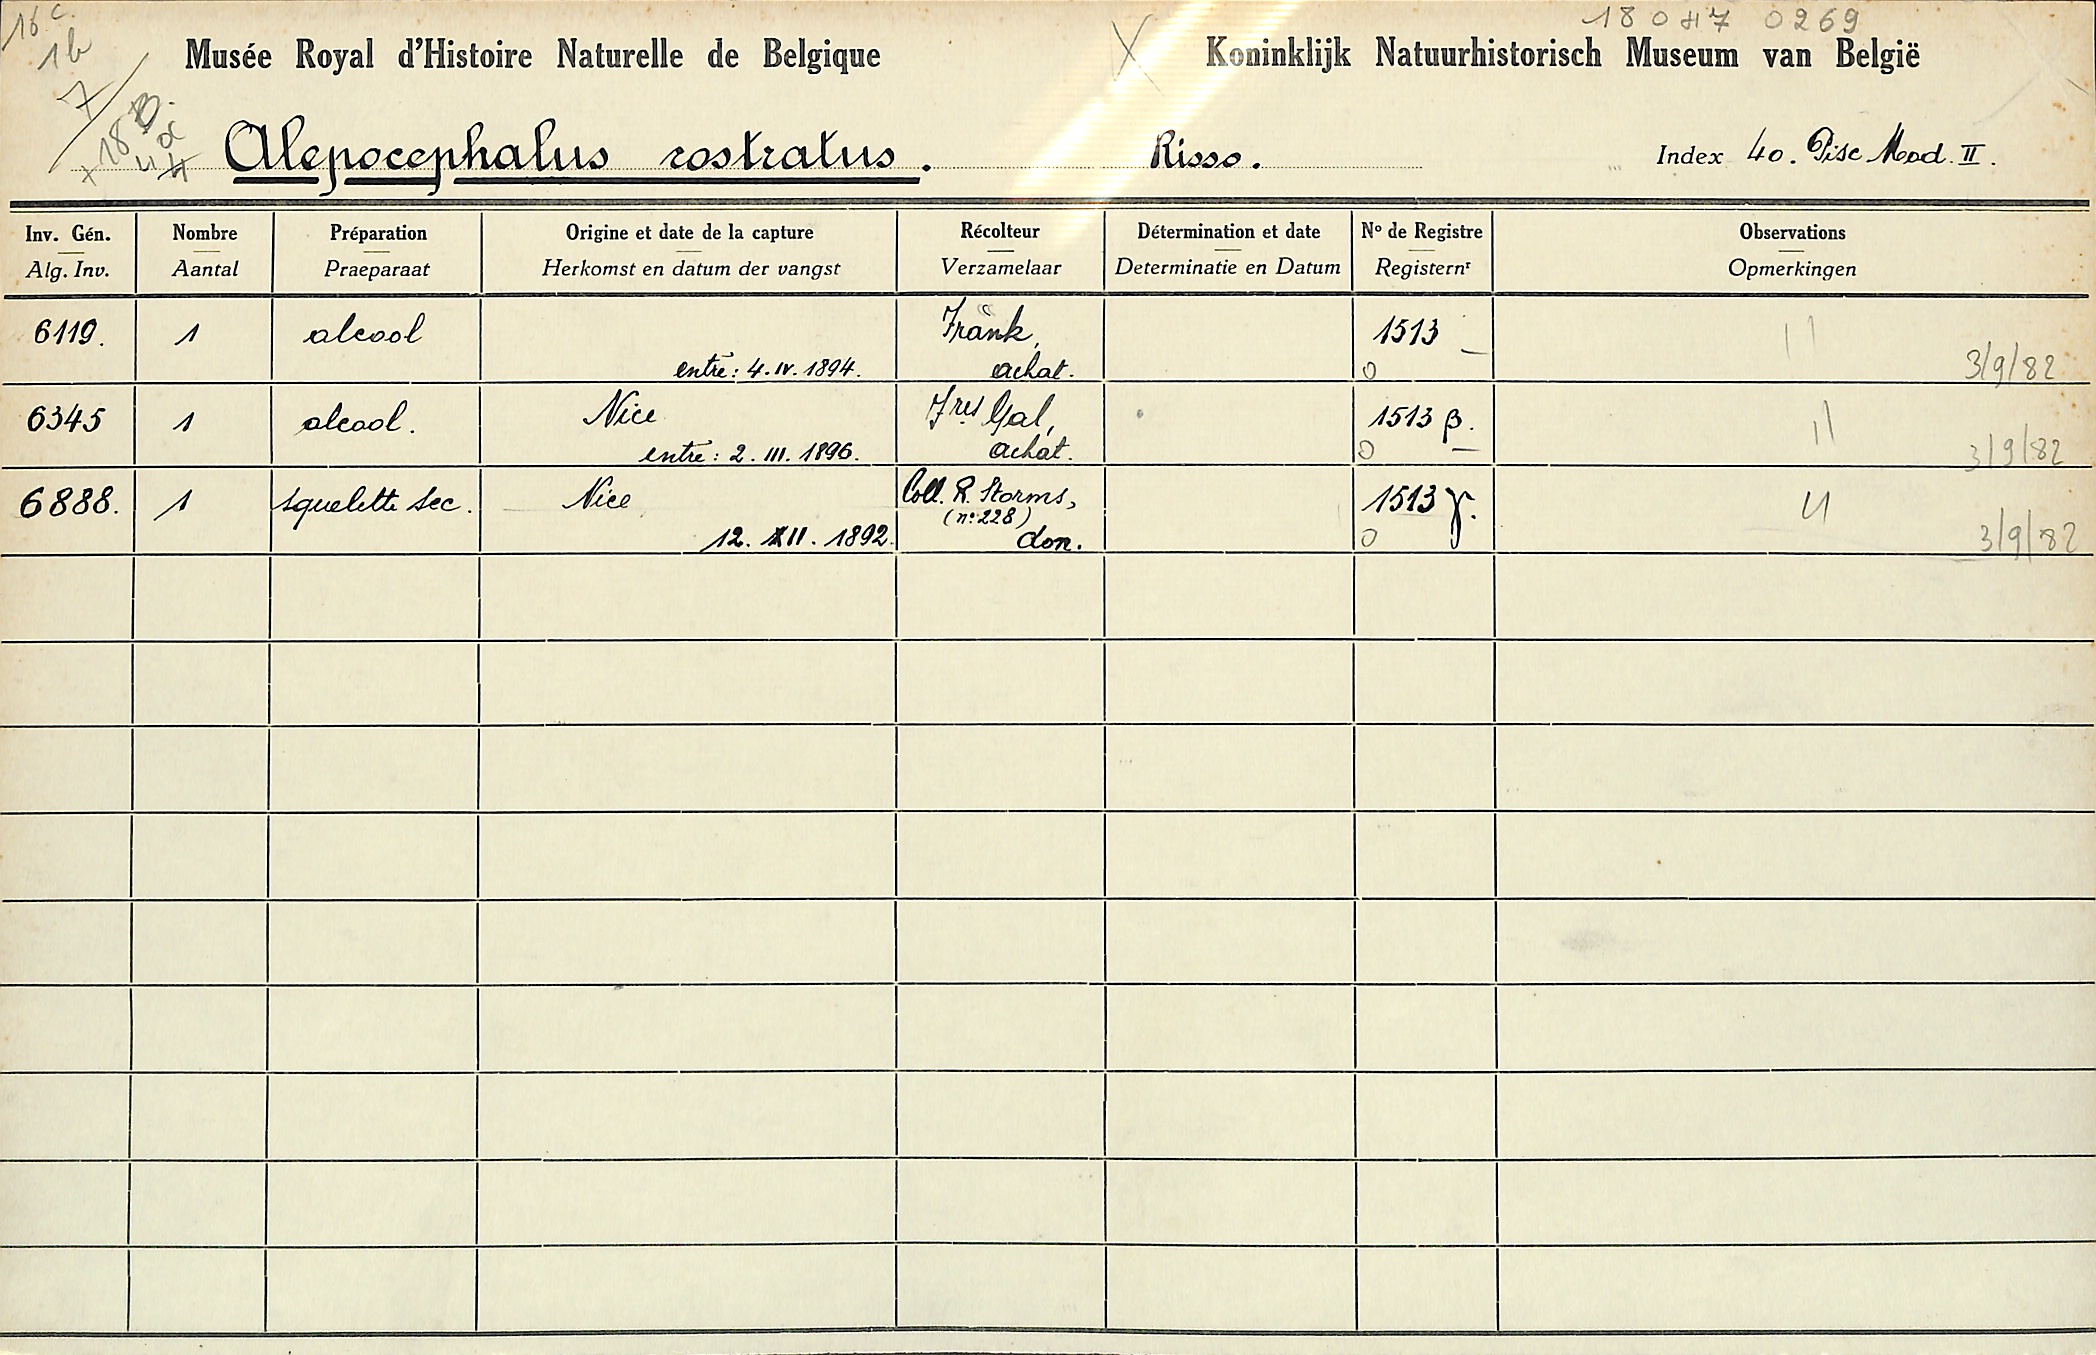 16 c
1b
7
18 B.
18 0 47 0269
Musée Royal d'Histoire Naturelle de Belgique
Koninklijk Natuurhistorisch Museum van België
Alepocephalus rostratus. Risso. Index 40. Pisc Mod. II.
Inv. Gén. Nombre Préparation Origine et date de la capture Récolteur Détermination et date Nº de Registre Observations
Alg. Inv. Aantal Praeparaat Herkomst en datum der vangst Verzamelaar Determinatie en Datum Registernʳ Opmerkingen
6119. 1 alcool Frank, 1513
entré: 4.IV.1894. achat. 0 3/9/82
6345 1 alcool. Nice Fres Gal, 1513 β.
entré: 2.III.1896. achat. 0 3/9/82
6888. 1 squelette sec. Nice Coll. R. Storms, 1513 γ.
(nº 228)
12. XII. 1892. don. 0 3/9/82